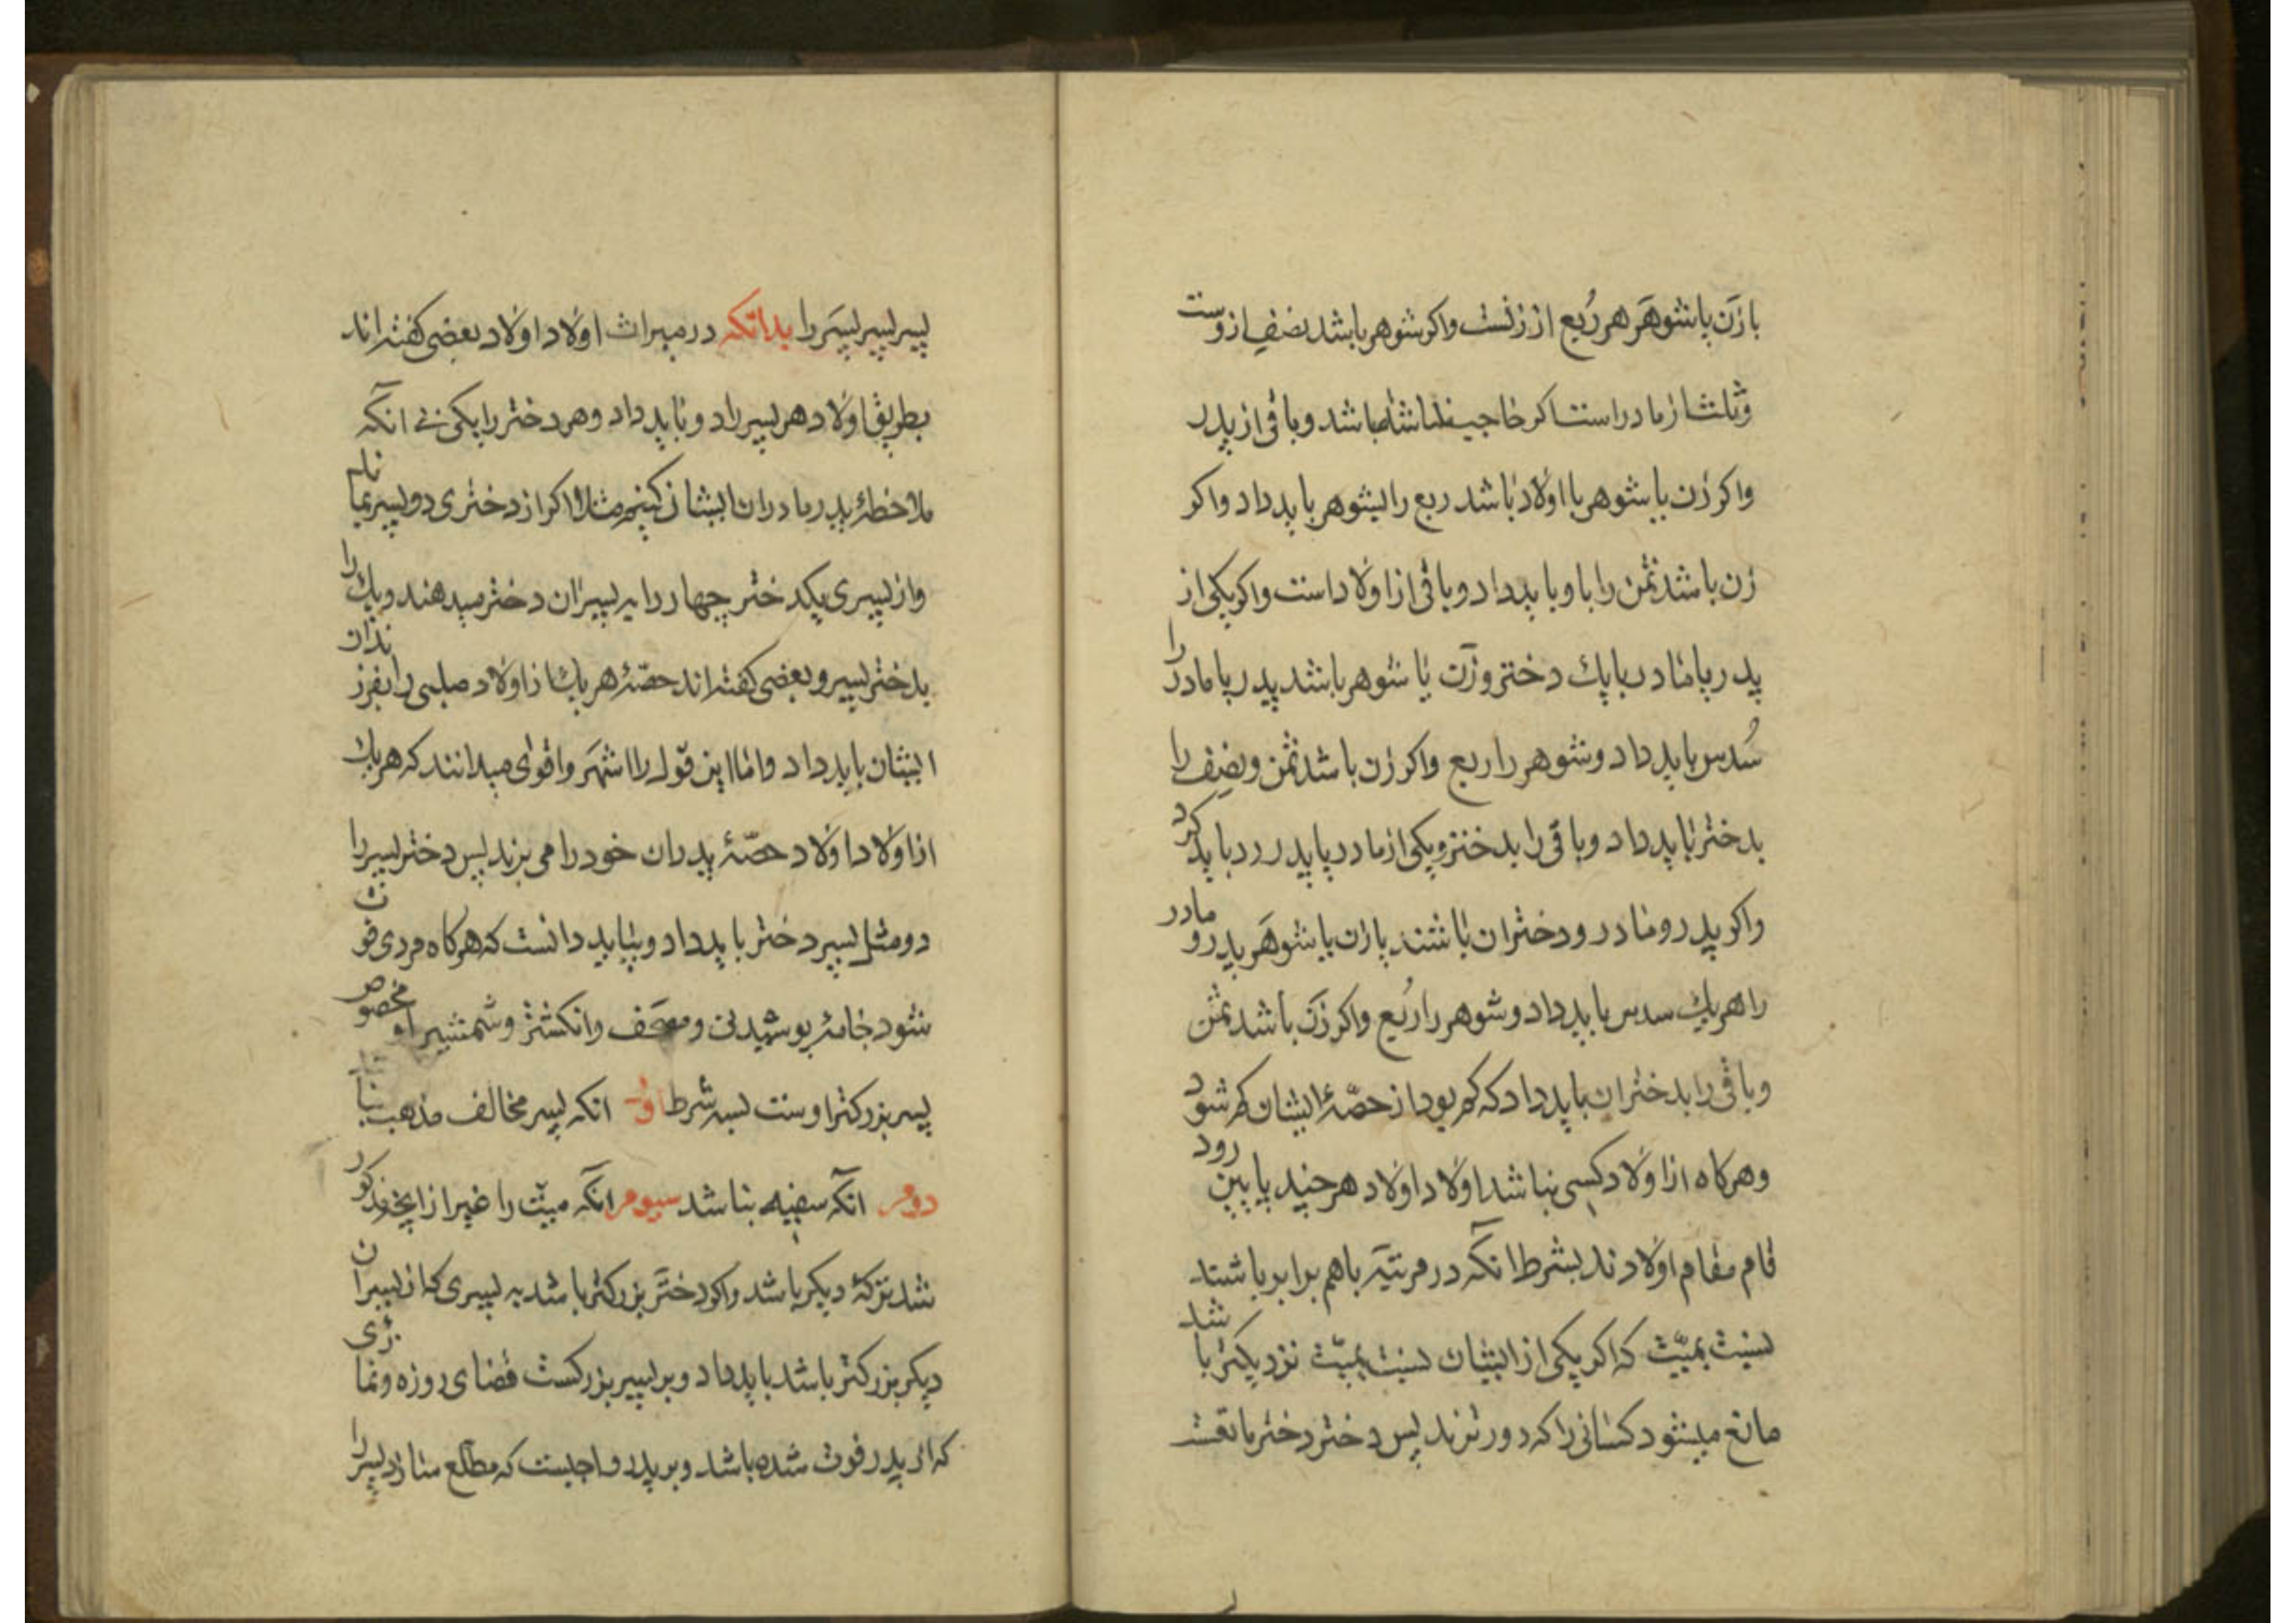 با زن یا شوهر هر ربع از زنست و اکر شوهر باشد نصف ازوست
و ثلث از مادر است اکر حاجب نداشته باشد و باقی از پدر
و اکر زن یا شوهر با اولاد باشد ربع را بشوهر باید داد و اکر
زن باشد ثمن را باو باید داد و باقی از اولاد است و اکر یکی از
پدر یا مادر با یك دختر و زن یا شوهر باشد پدر یا مادر را
سُدس باید داد و شوهر را ربع و اکر زن باشد ثمن و نصف را
بدختر باید داد و باقی را بدختر و یکی از مادر یا پدر رد باید کرد
و اکر پدر و مادر و دختران باشند با زن یا شوهر پدر و مادر
را هر یك سدس باید داد و شوهر را رُبع و اکر زن باشد ثمن
و باقی را بدختران باید داد که کم بود از حصّهٔ ایشان کم شود
و هرکاه از اولاد کسی نباشد اولاد اولاد هر چند پایین رود
قام مقام اولادند بشرط آنکه در مرتبه باهم برابر باشند
نسبت بمیّت که اکر یکی از ایشان نسبت بمیّت نزدیکتر باشد
مانع میشود کسانی را که دورترند پس دختر دختر مانعست
پسر پسر پسر را بدانکه در میراث اولاد اولاد بعضی کفته‌اند
بطریق اولاد هر پسر را دو باید داد و هر دختر را یکی بی آنکه
ملاحظهٔ پدر مادران ایشان کنیم مثلا اکر از دختری دو پسر بماند
و از پسری یکدختر چهار را به پسران دختر میدهند و یك را
بدختر پسر و بعضی کفته‌اند حصّهٔ هر یك از اولاد صلبی را بفرزندان
ایشان باید داد و امّا این قول را اشهر و اقوی میدانند که هر یك
از اولاد اولاد حصّهٔ پدران خود را می برند پس دختر پسر را
دو مثل پسر دختر باید داد و بباید دانست که هرکاه مردی فوت
شود جامهٔ پوشیدنی و مصحف و انکشتر و شمشیر او مخصوص
پسر بزرکتر اوست بسه شرط اوّل آنکه پسر مخالف مذهب نباشد
دوم آنکه سفیه نباشد سیوم آنکه میّت را غیر از آنچه مذکور
شد ترکهٔ دیکر باشد و اکر دختر بزرکتر باشد به پسری که از پسران
دیکر بزرکتر باشد باید داد و بر پسر بزرکست قضای روزه و نمازی
که از پدر فوت شده باشد و بر پدر واجبست که مطلع سازد پسر را